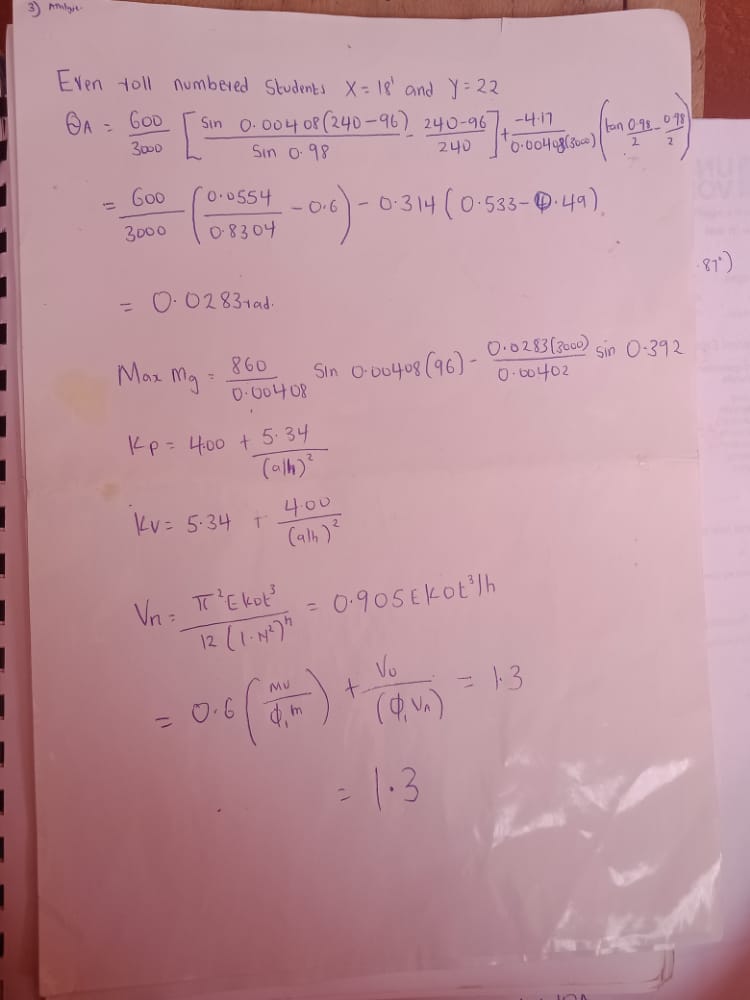 3) Analyse
Even roll numbered students X = 18' and Y = 22
θA = 600/3000 [ sin 0.00408(240-96)/sin 0.98 - 240-96/240 ] + -4.17/0.00408(3000) ( tan 0.98/2 - 0.98/2 )
= 600/3000 ( 0.0554/0.8304 - 0.6 ) - 0.314 ( 0.533 - 0.49 )
.87°)
= 0.0283 rad.
Max Mg = 860/0.00408 sin 0.00408(96) - 0.0283(3000)/0.00402 sin 0.392
Kp = 4.00 + 5.34/(a/h)²
Kv = 5.34 + 4.00/(a/h)²
Vn = π²Ekot³/12(1-N²)h = 0.905Ekot³/h
= 0.6 ( mu/φ,m ) + Vu/(φ,Vn) = 1.3
= 1.3